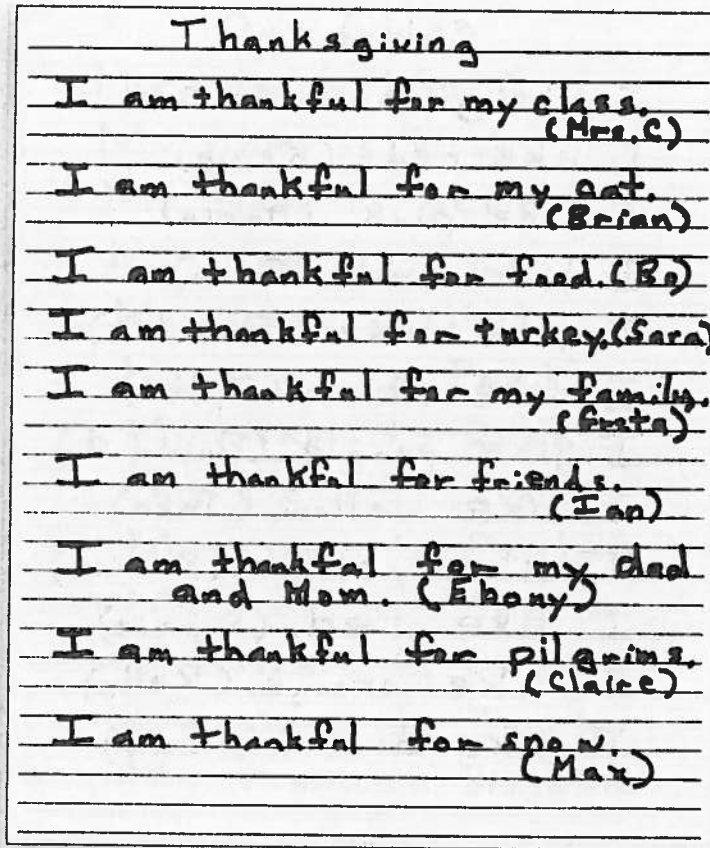 Thanksgiving
I am thankful for my class.
(Mrs. C)
I am thankful for my cat.
(Brian)
I am thankful for food. (Bo)
I am thankful for turkey. (Sara)
I am thankful for my family.
(Greta)
I am thankful for friends.
(Ian)
I am thankful for my dad
and Mom. (Ebony)
I am thankful for pilgrims.
(Claire)
I am thankful for snow.
(Max)